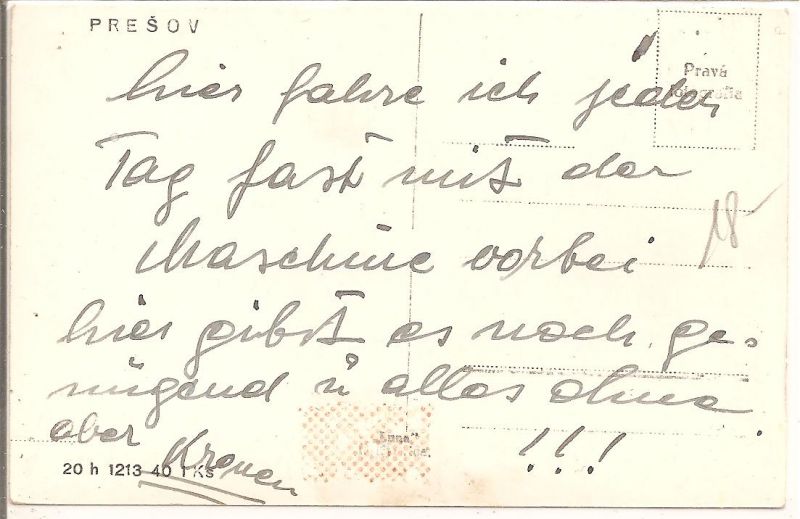 PREŠOV
Pravá
fotografia
hier fahre ich jeden
Tag fast mit der
Maschine vorbei
hier gibst es noch ge-
nügend ü alles ohne
aber Kronen !!!
18
"Luna"
20 h 1213 40 1 Ks